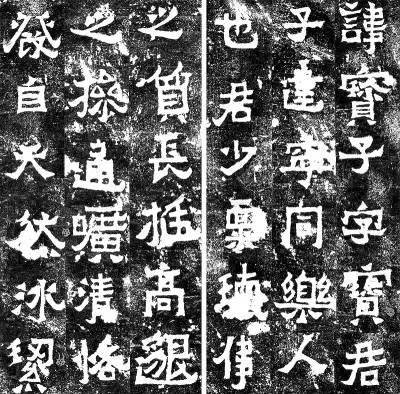 諱寶子字寶君
子建寧同樂人
也君少稟瓌偉
之質長挺高邈
之操通曠清恪
發自天然冰絜